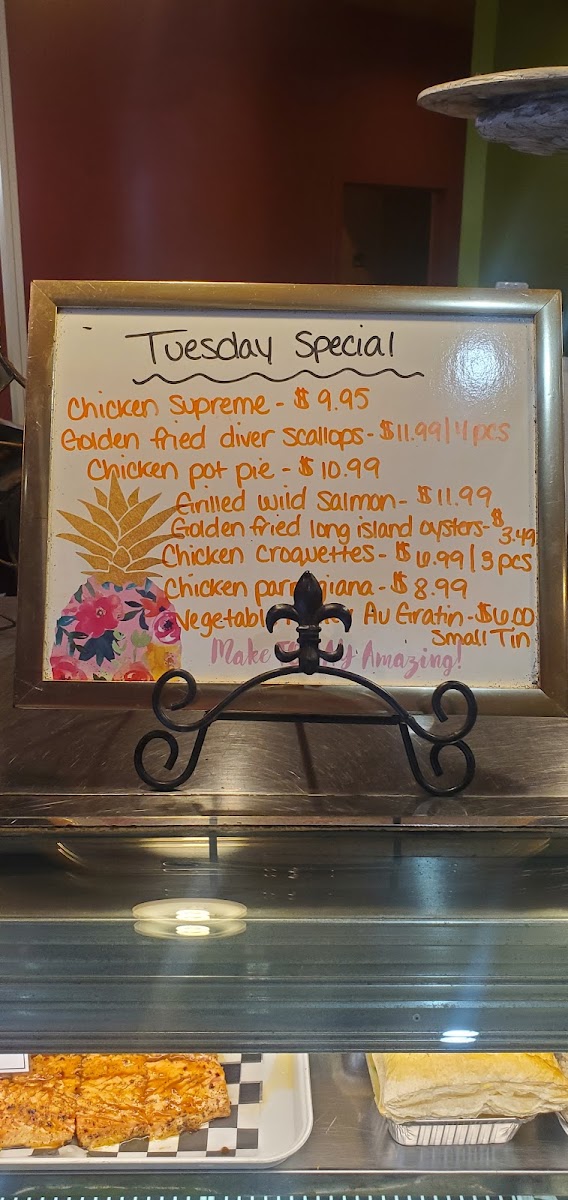 Tuesday Special
Chicken Supreme - $ 9.95
Golden fried diver scallops - $11.99 | 4 pcs
Chicken pot pie - $ 10.99
Grilled wild Salmon - $ 11.99
Golden fried long island oysters - $ 3.49
Chicken Croquettes - $ 6.99 | 3 pcs
Chicken parmigiana - $ 8.99
Au Gratin - $6.00
Small Tin
Make Amazing!